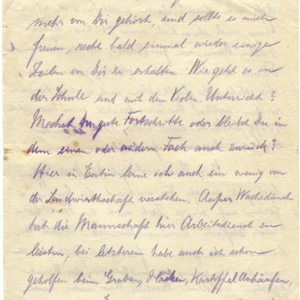 mehr von Dir gehört und sollte es mich
freuen, recht bald einmal wieder einige
Zeilen von Dir zu erhalten. Wie geht es in
der Schule und mit dem Violin Unterricht?
Machst Du gute Fortschritte oder bleibst Du in
dem einen oder andern Fach auch zurück?
Hier in Eutin lerne ich auch ein wenig von
der Landwirthschaft verstehen. Ausser Wachedienst
hat die Mannschaft hier Arbeitsdienst zu
leisten, bei letzterem habe auch ich schon
geholfen beim Graben, Hacken, Kartoffel Anhäufen,